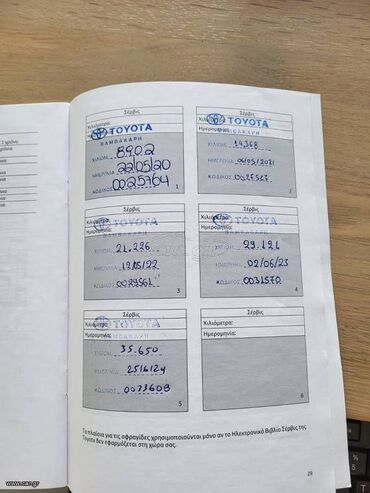 Σέρβις
Χιλιόμετρα:
TOYOTA
Ημερομηνία:
ΒΑΜΒΑΚΑΡΗ
ΧΙΛΙΟΜ. 8902
ΗΜΕΡ/ΝΙΑ 22/05/20
ΚΩΔΙΚΟΣ 0025764
1
Σέρβις
Χιλιόμετρα:
TOYOTA
Ημερομηνία:
ΒΑΜΒΑΚΑΡΗ
ΧΙΛΙΟΜ. 14.368
ΗΜΕΡ/ΝΙΑ 06/05/2021
ΚΩΔΙΚΟΣ
2
Σέρβις
Χιλιόμετρα:
TOYOTA
Ημερομηνία:
ΒΑΜΒΑΚΑΡΗ
ΧΙΛΙΟΜ. 21.226
ΗΜΕΡ/ΝΙΑ
ΚΩΔΙΚΟΣ 0029561
3
Σέρβις
Χιλιόμετρα:
TOYOTA
Ημερομηνία:
ΒΑΜΒΑΚΑΡΗ
ΧΙΛΙΟΜ. 29.121
ΗΜΕΡ/ΝΙΑ 02/06/23
ΚΩΔΙΚΟΣ 0031570
4
Σέρβις
Χιλιόμετρα:
TOYOTA
Ημερομηνία:
ΧΙΛΙΟΜ 35.650
ΗΜΕΡ/ΝΙΑ 25/6/24
ΚΩΔΙΚΟΣ 0073608
5
Σέρβις
Χιλιόμετρα:
Ημερομηνία:
6
Τα πλαίσια για τις σφραγίδες χρησιμοποιούνται μόνο αν το Ηλεκτρονικό Βιβλίο Σέρβις της
Toyota δεν εφαρμόζεται στη χώρα σας.
29
www.car.gr